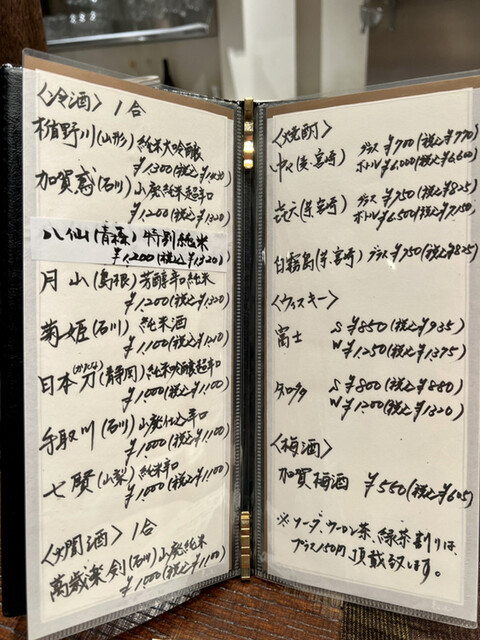 〈冷酒〉1合
楯野川(山形)純米大吟醸
¥1,300(税込¥1,430)
加賀鳶(石川)山廃純米超辛口
¥1,200(税込¥1,320)
八仙(青森)特別純米
¥1,200(税込¥1,320)
月山(島根)芳醇辛口純米
¥1,200(税込¥1,320)
菊姫(石川)純米酒
¥1,100(税込¥1,210)
日本刀(かたな)(静岡)純米吟醸超辛口
¥1,000(税込¥1,100)
手取川(石川)山廃仕込辛口
¥1,000(税込¥1,100)
七賢(山梨)純米辛口
¥1,000(税込¥1,100)
〈燗酒〉1合
萬歳楽 剣(石川)山廃純米
¥1,000(税込¥1,100)
〈焼酎〉
中々(麦・宮崎) グラス ¥700(税込¥770)
ボトル ¥6,000(税込¥6,600)
㐂六(芋・宮崎) グラス ¥750(税込¥825)
ボトル ¥6,500(税込¥7,150)
白霧島(芋・宮崎) グラス ¥750(税込¥825)
〈ウイスキー〉
富士 S ¥850(税込¥935)
W ¥1,250(税込¥1,375)
S ¥800(税込¥880)
W ¥1,200(税込¥1,320)
〈梅酒〉
加賀梅酒 ¥550(税込¥605)
※ソーダ、ウーロン茶、緑茶割りは、
プラス150円頂戴致します。